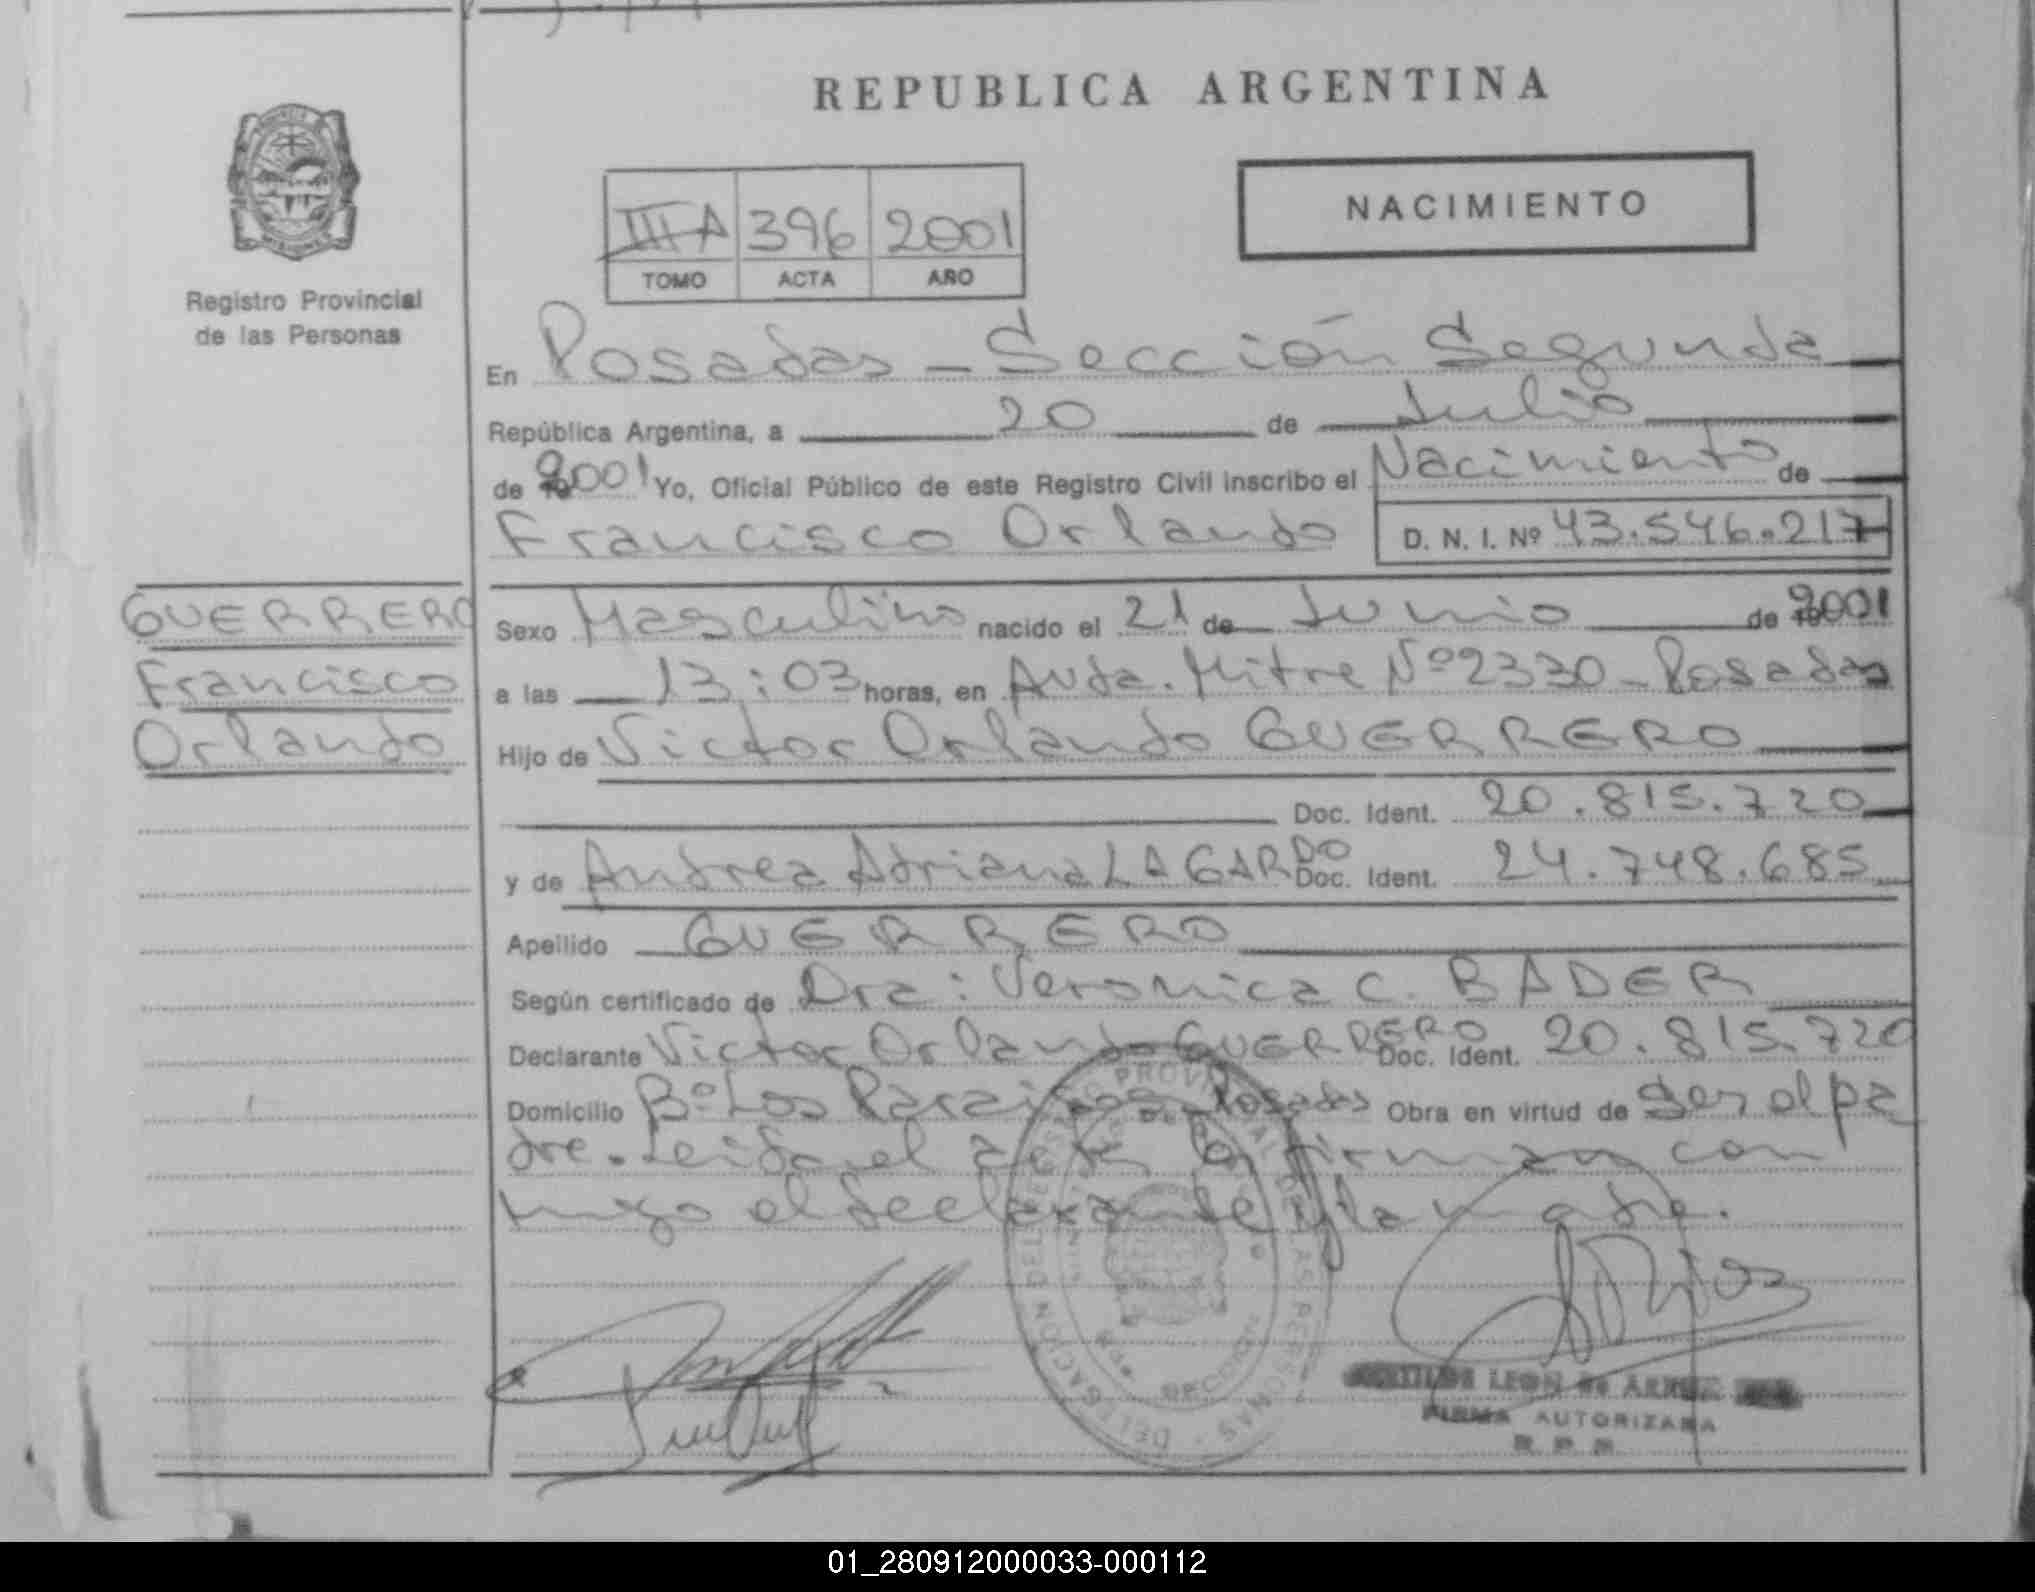 REPUBLICA ARGENTINA
Registro Provincial
de las Personas
III A 396 2001
TOMO ACTA AÑO
NACIMIENTO
En Posadas - Sección Segunda
República Argentina, a 20 de Julio
de 2001 Yo, Oficial Público de este Registro Civil inscribo el Nacimiento de
Francisco Orlando D. N. I. Nº 43.546.217
GUERRERO
Francisco
Orlando
Sexo Masculino nacido el 21 de Junio de 2001
a las 13:03 horas, en Avda. Mitre Nº 2330 - Posadas
Hijo de Victor Orlando GUERRERO
Doc. Ident. 20.815.720
y de Andrea Adriana LAGARDO Doc. Ident. 24.748.685
Apellido GUERRERO
Según certificado de Dra: Veronica C. BADER
Declarante Victor Orlando GUERRERO Doc. Ident. 20.815.720
Domicilio Bº Los Paraisos - Posadas Obra en virtud de Ser el pa
dre. Leida el acta la firman con
migo el declarante y la madre.
DELEGACION DEL REGISTRO PROVINCIAL DE LAS PERSONAS
LEON de
FIRMA AUTORIZADA
01_280912000033-000112